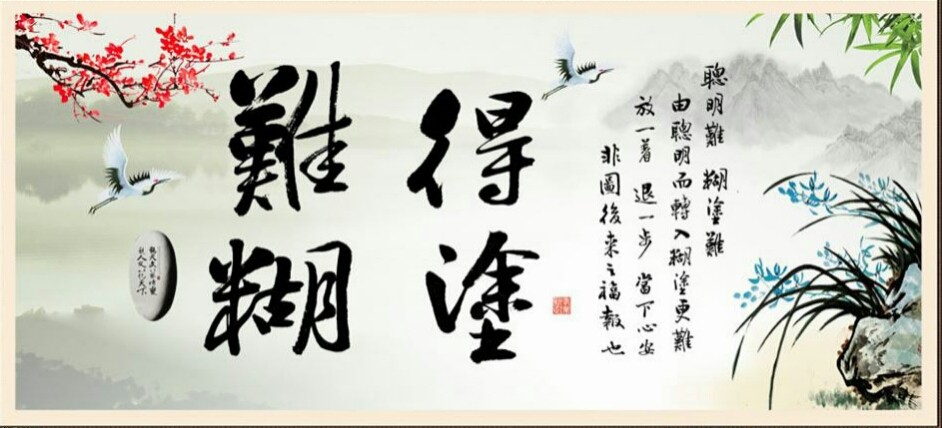 難得
糊塗
聰明難 糊塗難
由聰明而轉入糊塗更難
放一著 退一步 當下心安
非圖後來之福報也